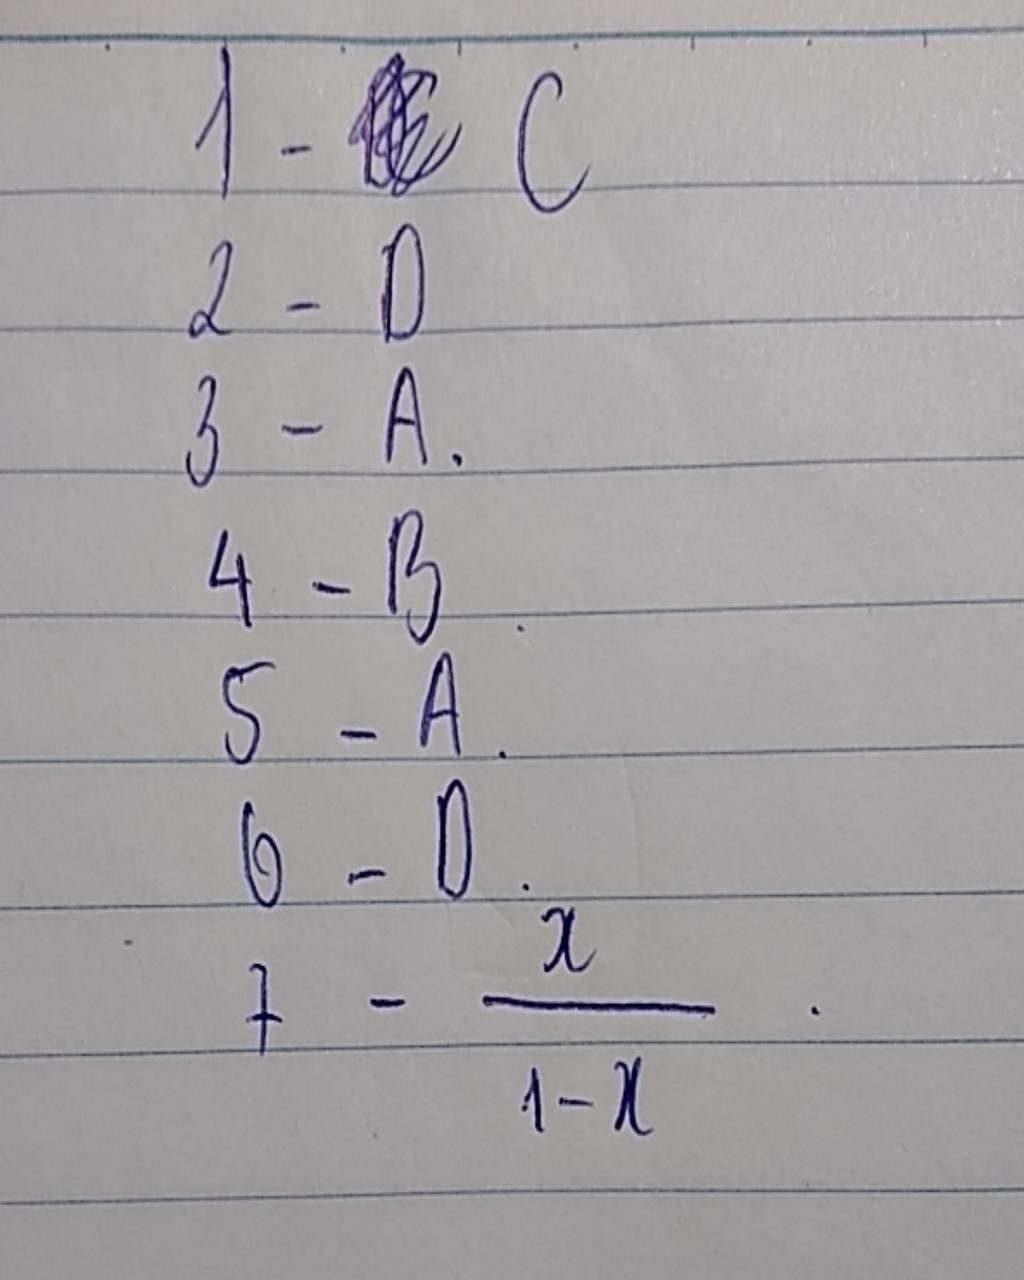 1 - C
2 - D
3 - A.
4 - B.
5 - A.
6 - D.
7 - x/(1-x).